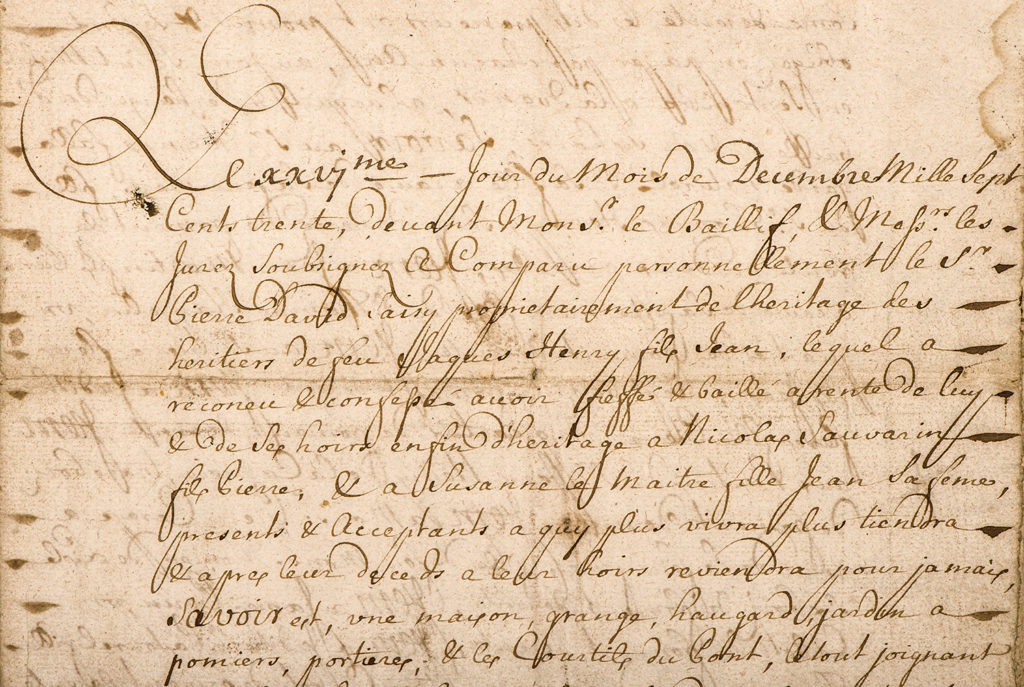 Le xxvj.me - Jour du Mois de Decembre Mille Sept
Cents trente, devant Mons.r le Baillif, & Mess.rs les
Jurez Soubsignez & Comparu personnellement le S.r
Pierre David Saisy proprietairement de lheritage des
heritiers de feu Jaques Henry fils Jean, lequel a
reconeu & confessé avoir fieffé & baillé a rente de luy
& de Ses hoirs enfin d'heritage a Nicolas Sauvarin
fils Pierre, & a Susanne le Maitre fille Jean Sa feme,
presents & Acceptants a quy plus vivra plus tiendra
& apres leur deceds a leur hoirs reviendra pour jamais,
Savoir est, vne maison, grange, haugard, jardin a
pomiers, portieres, & les Courtils du Pont, le tout joignant